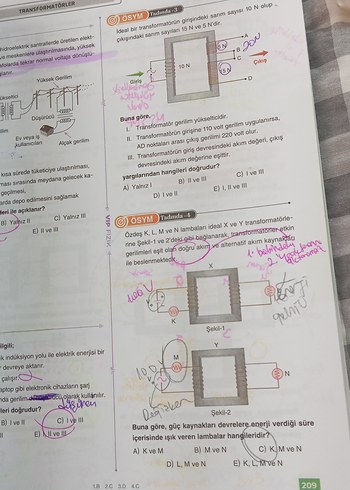 TRANSFORMATÖRLER
hidroelektrik santrallerde üretilen elekt-
ve merkezlere ulaştırılmasında, yüksek
Yüksek Gerilim
Düşürücü
Ev veya iş
kullanıcıları
Alçak gerilim
kısa sürede tüketiciye ulaştırılması,
ması sırasında meydana gelecek ka-
geçilmesi,
arda depo edilmesini sağlamak
leri ile açıklanır?
B) Yalnız II
C) Yalnız III
E) II ve III
ilgili;
k indüksiyon yolu ile elektrik enerjisi bir
devreye aktarır.
çalışır.
aptop gibi elektronik cihazların şarj
olarak kullanılır.
leri doğrudur?
B) I ve II
C) I ve III
E) I, II ve III
ÖSYM Tadında - 3
İdeal bir transformatörün girişindeki sarım sayısı 10 N olup,
çıkışındaki sarım sayıları 15 N ve 5 N'dir.
A
5 N
B
10 N
C
15 N
D
Giriş
Çıkış
Buna göre,
I. Transformatör gerilim yükselticidir.
II. Transformatörün girişine 110 volt gerilim uygulanırsa,
AD noktaları arası çıkış gerilimi 220 volt olur.
III. Transformatörün giriş devresindeki akım değeri, çıkış
devresindeki akım değerine eşittir.
yargılarından hangileri doğrudur?
A) Yalnız I
B) II ve III
C) I ve III
D) I ve II
E) I, II ve III
ÖSYM Tadında - 4
Özdeş K, L, M ve N lambaları ideal X ve Y transformatörle-
rine Şekil-1 ve 2'deki gibi bağlanarak, transformatörler etkin
gerilimleri eşit olan doğru akım ve alternatif akım kaynakları
ile beslenmektedir.
X
100 V
K
Şekil-1
Y
M
N
Şekil-2
Değişken
Buna göre, güç kaynakları devrelere enerji verdiği süre
içerisinde ışık veren lambalar hangileridir?
A) K ve M
B) M ve N
C) K, M ve N
D) L, M ve N
E) K, L, M ve N
VIP FİZİK
1B 2C 3D 4C
209